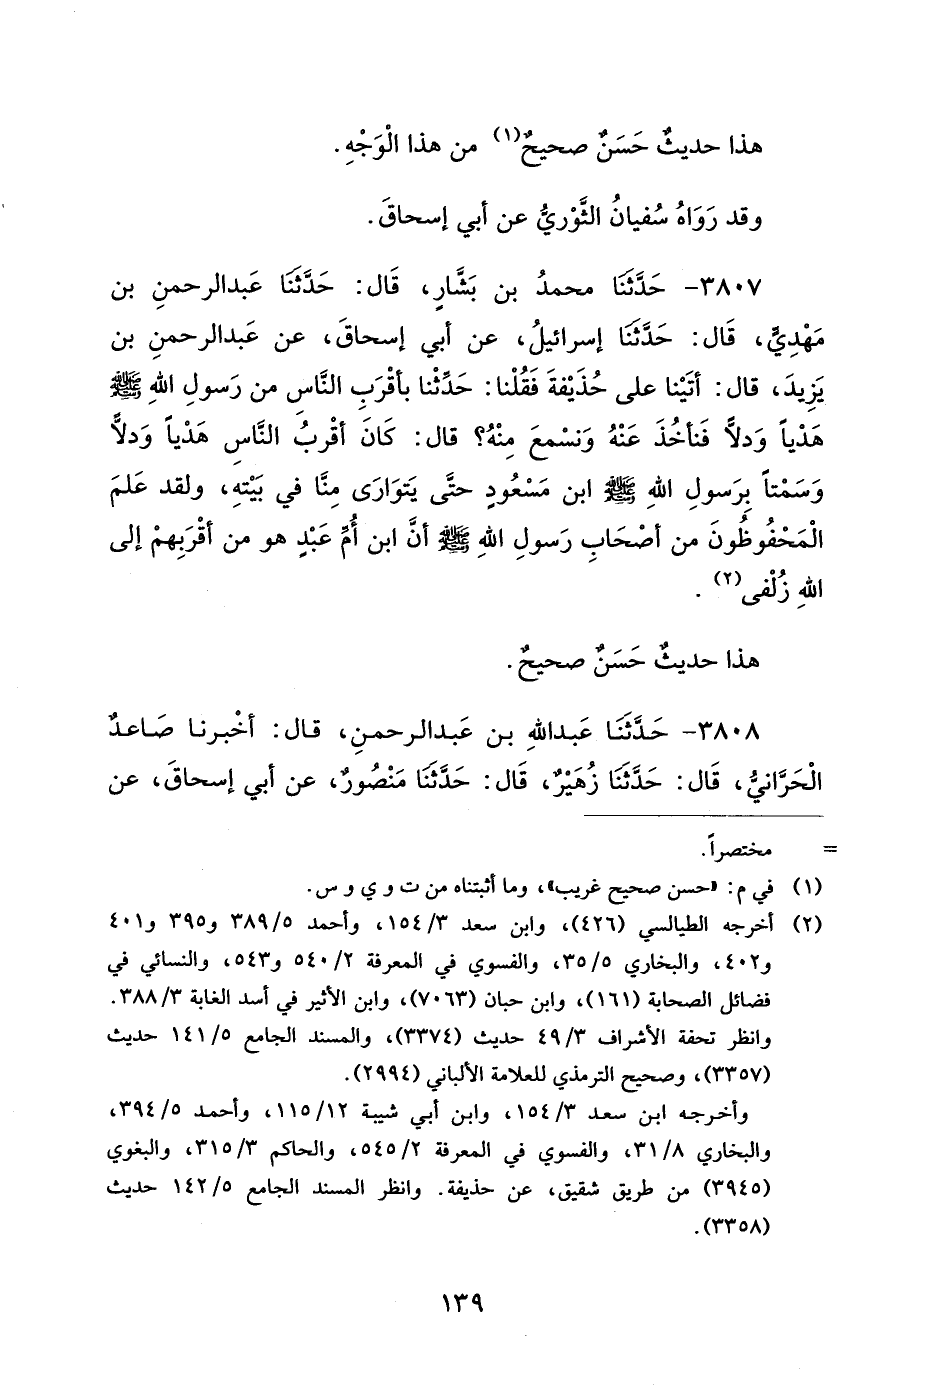 هذا حديثٌ حَسَنٌ صحيحٌ(١) من هذا الْوَجْهِ.
وقد رَوَاهُ سُفيانُ الثَّوْريُّ عن أبي إسحاقَ.
٣٨٠٧- حَدَّثَنَا محمدُ بن بَشَّارٍ، قَال: حَدَّثَنَا عَبدالرحمنِ بن
مَهْدِيٍّ، قَال: حَدَّثَنَا إسرائيلُ، عن أبي إسحاقَ، عن عَبدالرحمنِ بن
يَزِيدَ، قال: أتَيْنا على حُذَيْفةَ فَقُلْنا: حَدِّثْنا بأقْرَبِ النَّاس من رَسولِ اللهِ ﷺ
هَدْياً وَدلاًّ فَنأخُذَ عَنْهُ وَنَسْمعَ مِنْهُ؟ قال: كَانَ أقْربُ النَّاسِ هَدْياً وَدلاًّ
وَسَمْتاً بِرَسولِ اللهِ ﷺ ابن مَسْعُودٍ حتَّى يَتوَارَى مِنَّا في بَيْتهِ، ولقد عَلمَ
الْمَحْفُوظُونَ من أصْحَابِ رَسولِ اللهِ ﷺ أنَّ ابن أُمِّ عَبْدٍ هو من أقْرَبِهمْ إلى
اللهِ زُلْفى(٢).
هذا حديثٌ حَسَنٌ صحيحٌ.
٣٨٠٨- حَدَّثَنَا عَبدالله بن عَبدالرحمنِ، قال: أخْبرنا صَاعدٌ
الْحَرَّانيُّ، قَال: حَدَّثَنَا زُهَيْرٌ، قَال: حَدَّثَنَا مَنْصُورٌ، عن أبي إسحاقَ، عن
= مختصراً.
(١) في م: «حسن صحيح غريب»، وما أثبتناه من ت و ي و س.
(٢) أخرجه الطيالسي (٤٢٦)، وابن سعد ٣/ ١٥٤، وأحمد ٥/ ٣٨٩ و٣٩٥ و٤٠١
و٤٠٢، والبخاري ٥/ ٣٥، والفسوي في المعرفة ٢/ ٥٤٠ و٥٤٣، والنسائي في
فضائل الصحابة (١٦١)، وابن حبان (٧٠٦٣)، وابن الأثير في أسد الغابة ٣/ ٣٨٨.
وانظر تحفة الأشراف ٣/ ٤٩ حديث (٣٣٧٤)، والمسند الجامع ٥/ ١٤١ حديث
(٣٣٥٧)، وصحيح الترمذي للعلامة الألباني (٢٩٩٤).
وأخرجه ابن سعد ٣/ ١٥٤، وابن أبي شيبة ١٢/ ١١٥، وأحمد ٥/ ٣٩٤،
والبخاري ٨/ ٣١، والفسوي في المعرفة ٢/ ٥٤٥، والحاكم ٣/ ٣١٥، والبغوي
(٣٩٤٥) من طريق شقيق، عن حذيفة. وانظر المسند الجامع ٥/ ١٤٢ حديث
(٣٣٥٨).
١٣٩